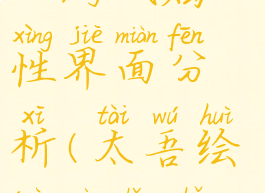 xìng jiè miàn fēn
性界面分
xī tài wú huì
析(太吾绘